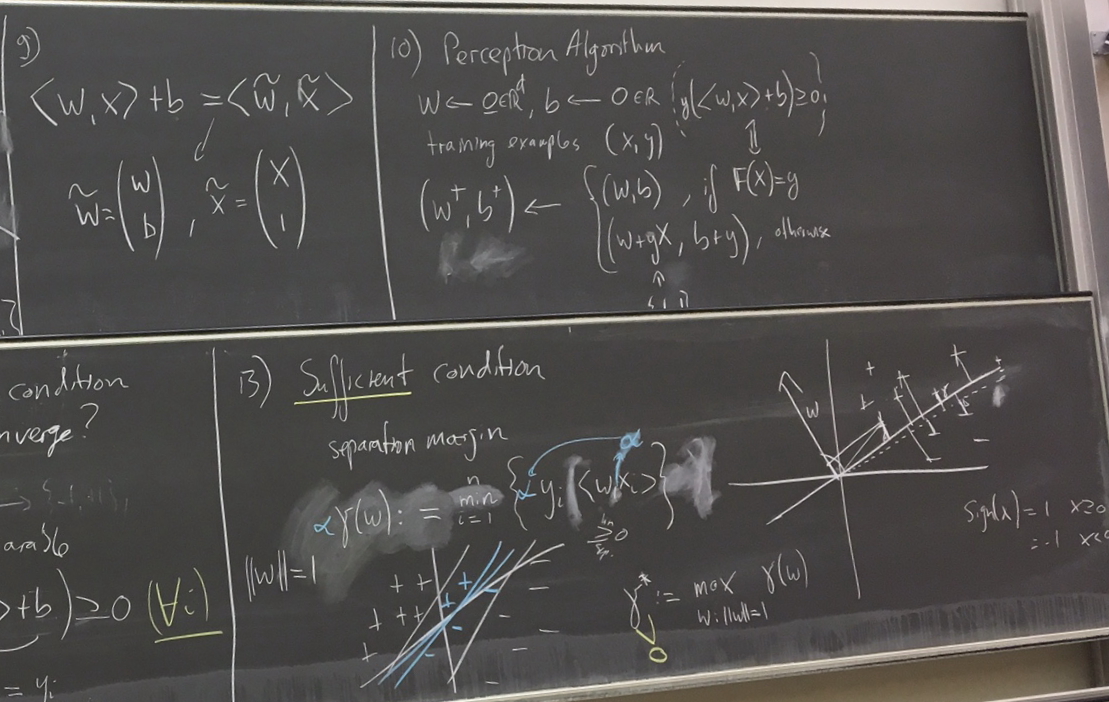 9)
⟨w,x⟩+b = ⟨w̃, x̃⟩
w̃ = (w b), x̃ = (x 1)
10) Perceptron Algorithm
w ← 0∈ℝᵈ, b ← 0∈ℝ (y(⟨w,x⟩+b)≥0)
⇕
training examples (x,y)
(w⁺, b⁺) ← { (w,b), if F(x)=y
(w+yx, b+y), otherwise
↑
condition
nverge?
+b) ≥ 0 (∀i)
= yᵢ
13) Sufficient condition
separation margin
α
αγ(w) := min i=1 n { α yᵢ ⟨w xᵢ⟩ }
≥0
||w||=1
γ* := max γ(w)
w:||w||=1
>0
w
sign(x) = 1 x≥0
= -1 x<0